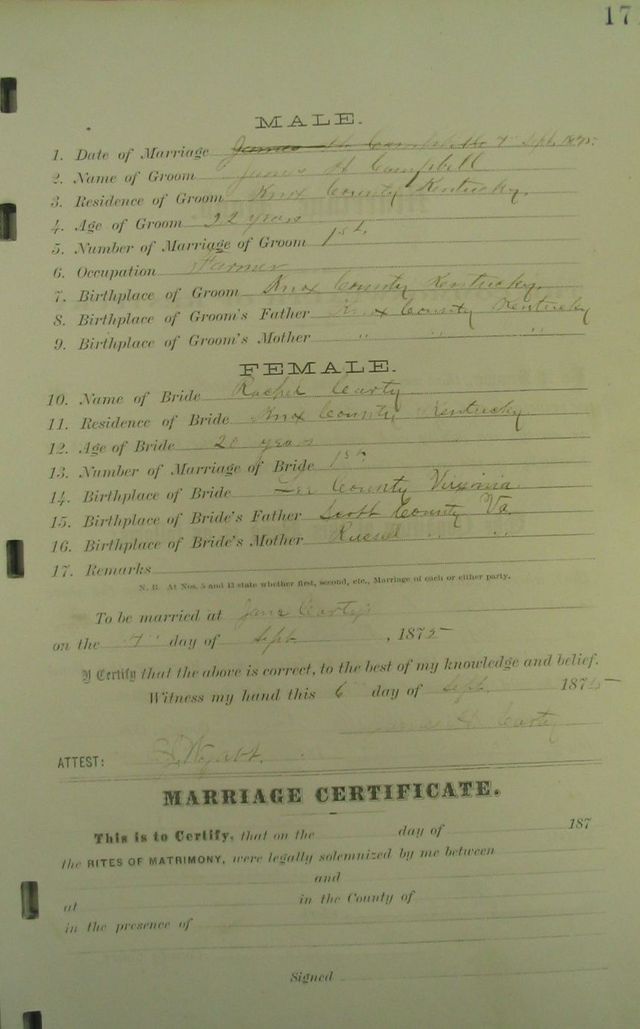 17
MALE.
1. Date of Marriage James H. Campbell the 7" Sept. 1875.
2. Name of Groom James H Campbell
3. Residence of Groom Knox County Kentucky.
4. Age of Groom 22 years
5. Number of Marriage of Groom 1st.
6. Occupation Farmer
7. Birthplace of Groom Knox County Kentucky.
8. Birthplace of Groom's Father Knox County Kentucky
9. Birthplace of Groom's Mother " " "
FEMALE.
10. Name of Bride Rachel Carty
11. Residence of Bride Knox County Kentucky
12. Age of Bride 20 years
13. Number of Marriage of Bride 1st
14. Birthplace of Bride Lee County Virginia
15. Birthplace of Bride's Father Scott County Va.
16. Birthplace of Bride's Mother Russell " "
17. Remarks
N. B. At Nos. 5 and 13 state whether first, second, etc., Marriage of each or either party.
To be married at Jane Carty's
on the 7" day of Sept , 1875
I Certify that the above is correct, to the best of my knowledge and belief.
Witness my hand this 6 day of Sept. 1875
H Carty
ATTEST: Wyatt.
MARRIAGE CERTIFICATE.
This is to Certify, that on the day of 187
the RITES OF MATRIMONY, were legally solemnized by me between
and
at in the County of
in the presence of
Signed